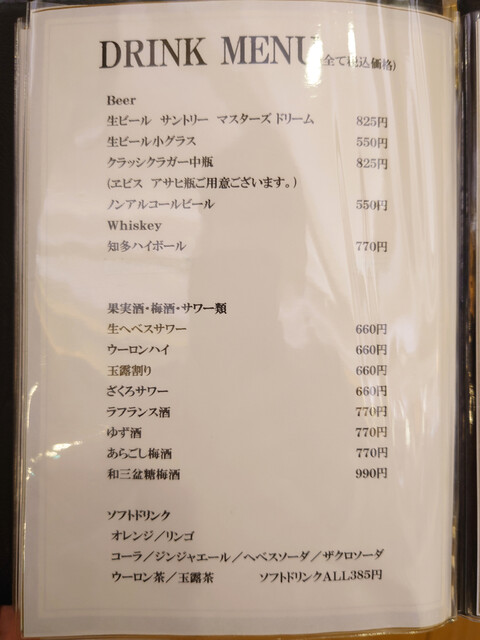 DRINK MENU (全て税込価格)
Beer
生ビール サントリー マスターズドリーム 825円
生ビール小グラス 550円
クラッシクラガー中瓶 825円
(ヱビス アサヒ瓶ご用意ございます。)
ノンアルコールビール 550円
Whiskey
知多ハイボール 770円
果実酒・梅酒・サワー類
生ヘベスサワー 660円
ウーロンハイ 660円
玉露割り 660円
ざくろサワー 660円
ラフランス酒 770円
ゆず酒 770円
あらごし梅酒 770円
和三盆糖梅酒 990円
ソフトドリンク
オレンジ/リンゴ
コーラ/ジンジャエール/ヘベスソーダ/ザクロソーダ
ウーロン茶/玉露茶 ソフトドリンクALL385円